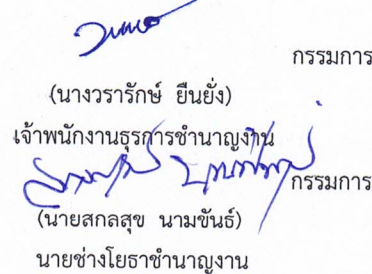 กรรมการ
(นางวรารักษ์ ยืนยั่ง)
เจ้าพนักงานธุรการชำนาญงาน
กรรมการ
(นายสกลสุข นามขันธ์)
นายช่างโยธาชำนาญงาน